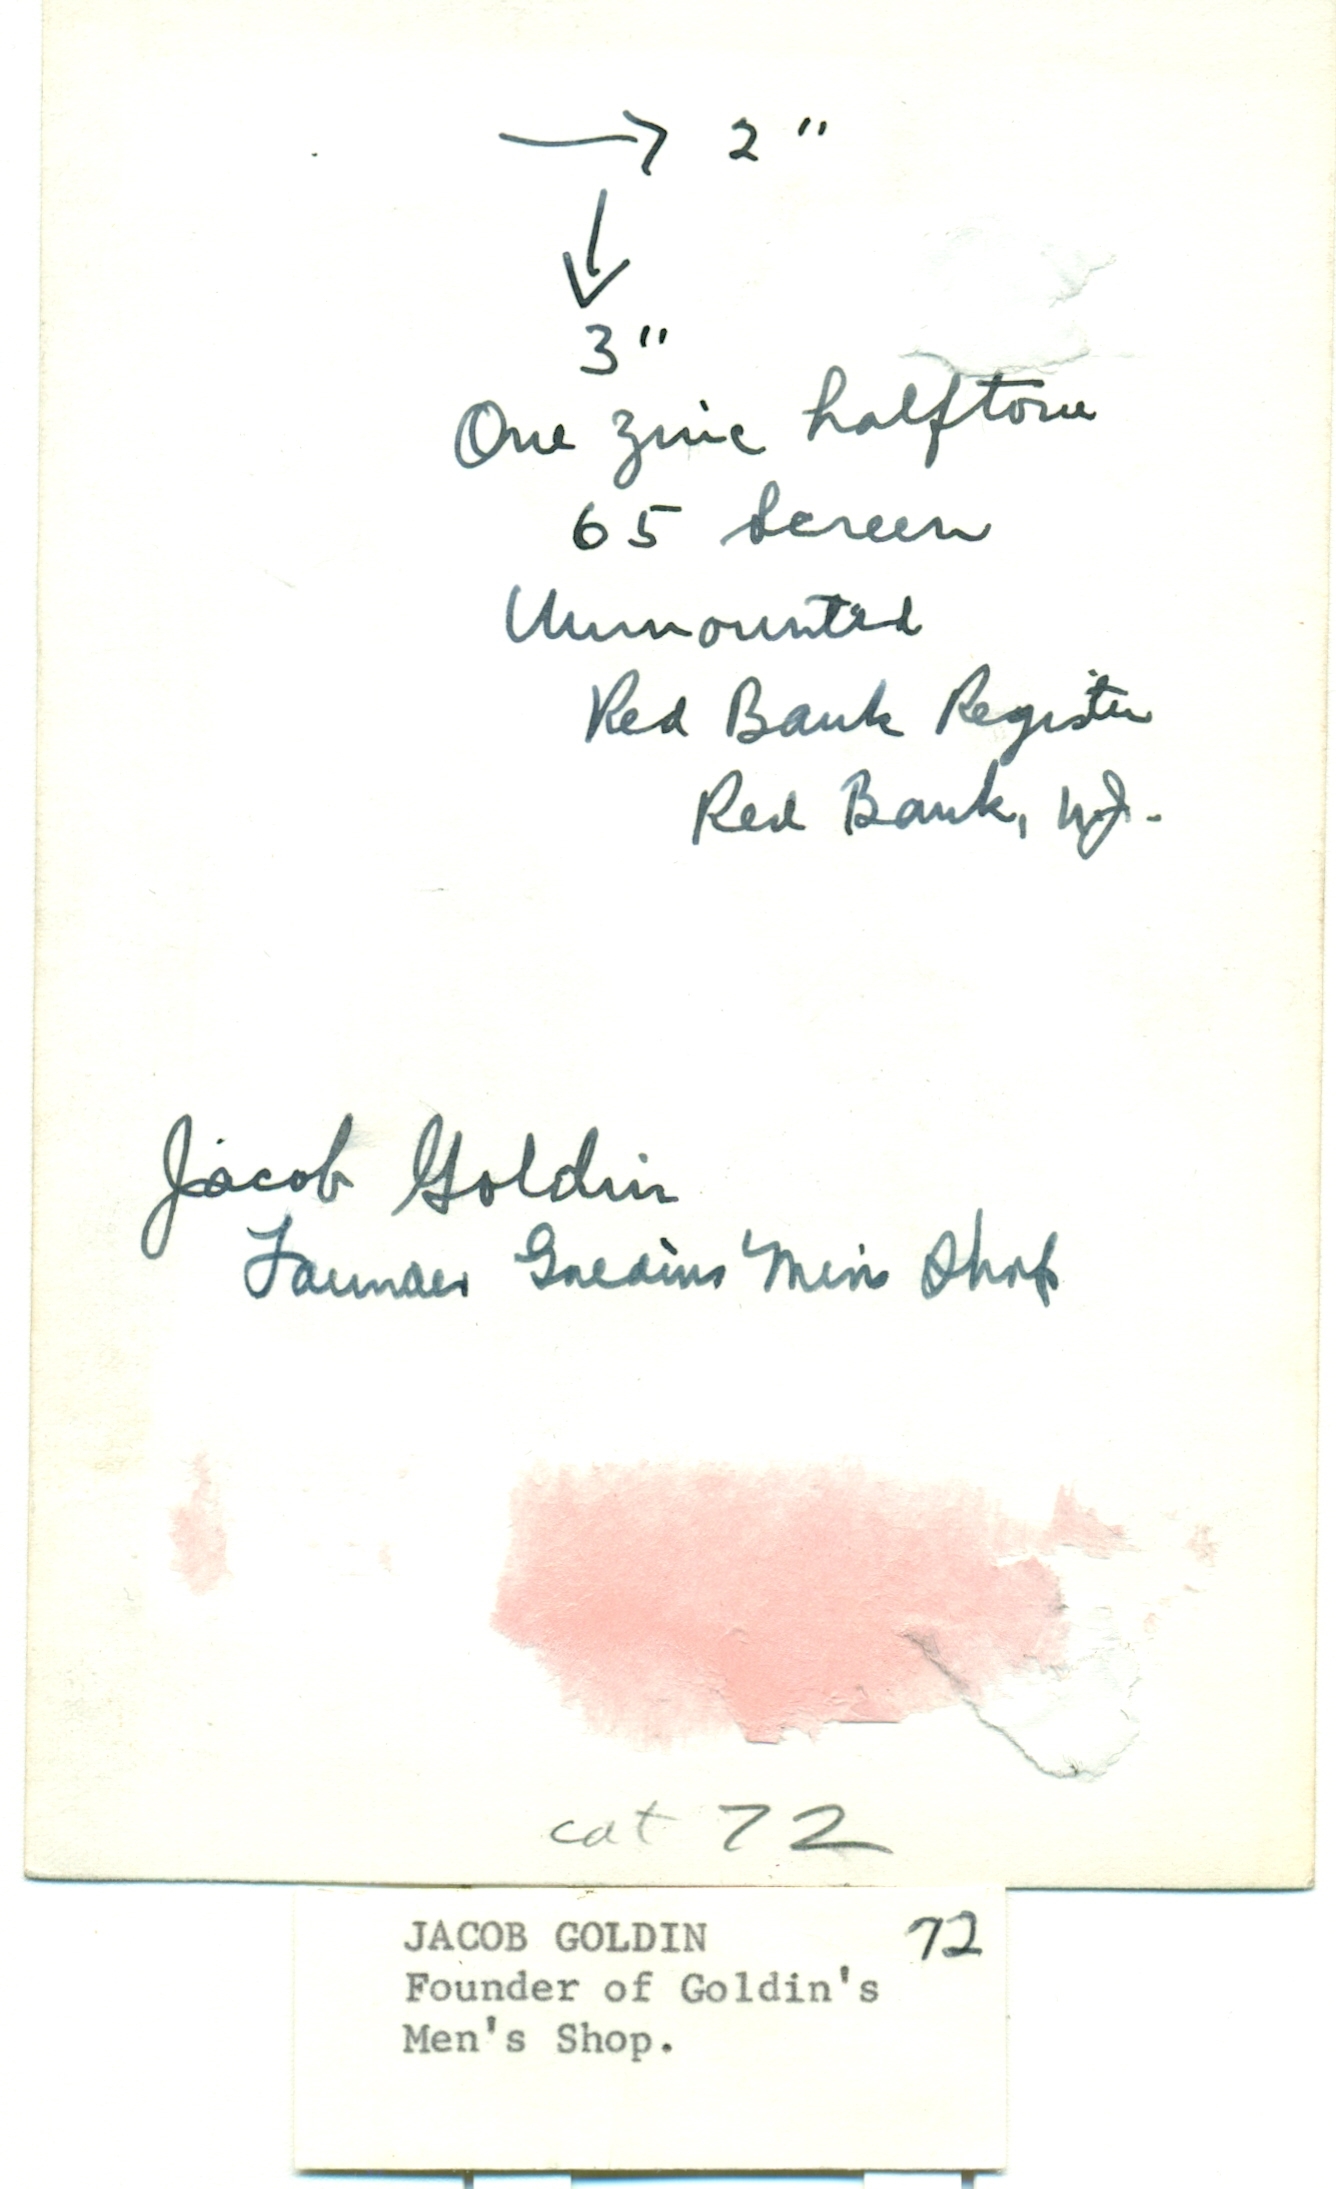 → 2"
↓
3"
One zinc halftone
65 Screen
Unmounted
Red Bank Register
Red Bank, N.J.
Jacob Goldin
Founder Goldins Mens Shop
cat 72
JACOB GOLDIN 72
Founder of Goldin's
Men's Shop.